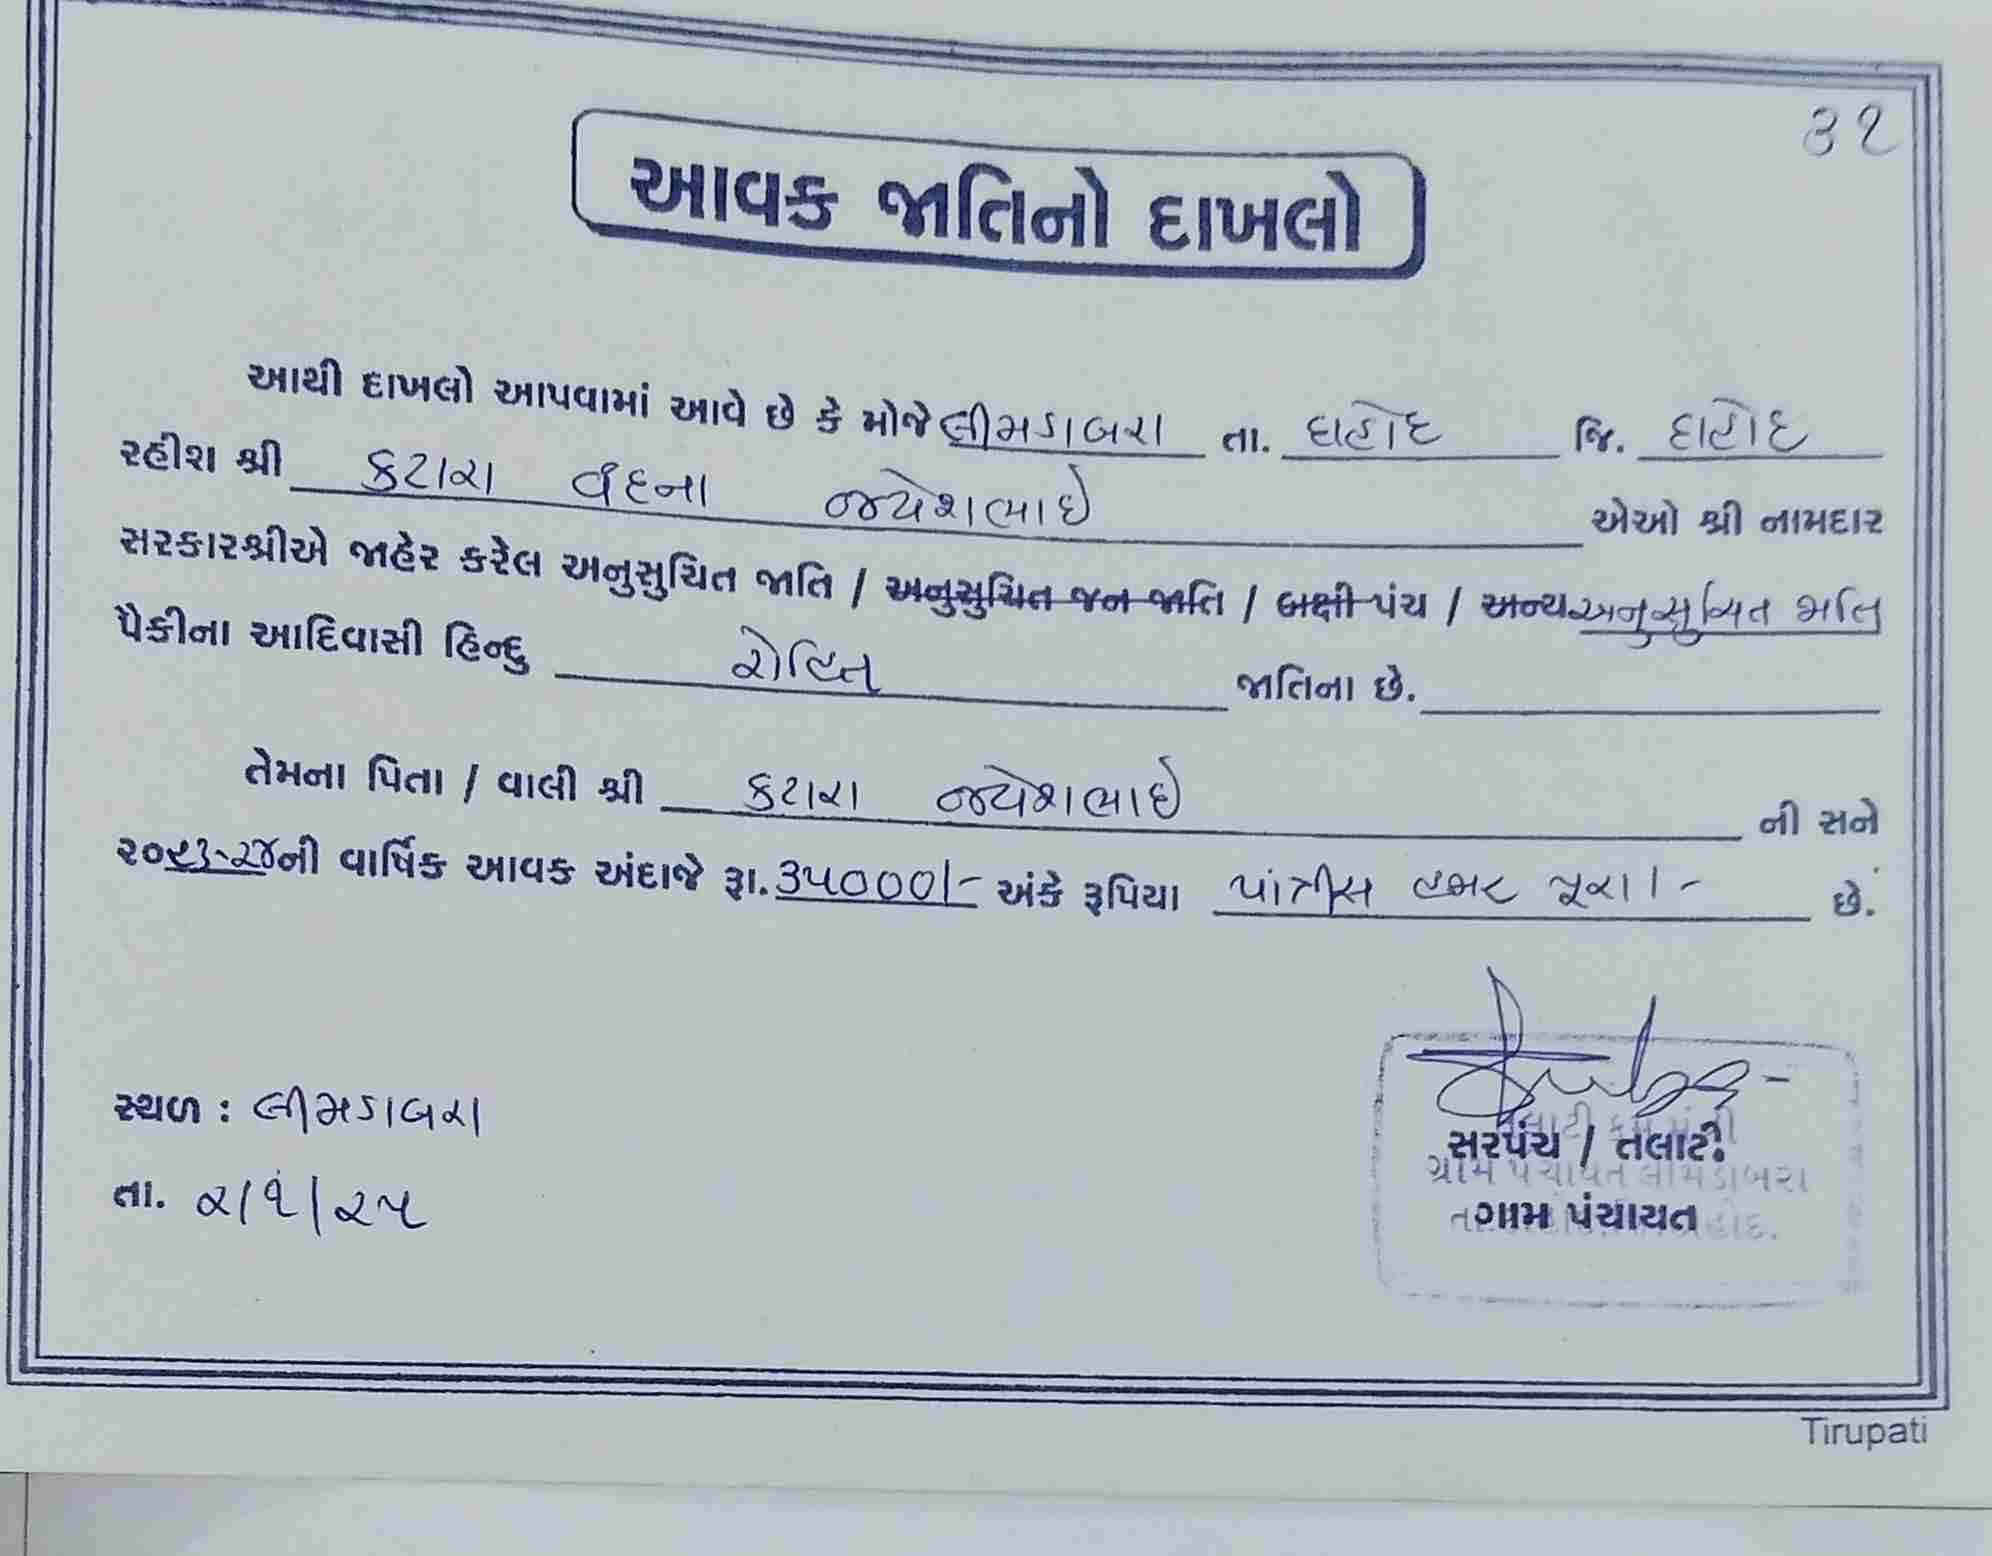 ૩૧
આવક જાતિનો દાખલો
આથી દાખલો આપવામાં આવે છે કે મોજે લીમડાબરા તા. દાહોદ જિ. દાહોદ
રહીશ શ્રી કટારા વંદના જયેશભાઈ એઓ શ્રી નામદાર
સરકારશ્રીએ જાહેર કરેલ અનુસુચિત જાતિ / અનુસુચિત જન જાતિ / બક્ષી પંચ / અન્ય અનુસુચિત જાતિ
પૈકીના આદિવાસી હિન્દુ રોહિત જાતિના છે.
તેમના પિતા / વાલી શ્રી કટારા જયેશભાઈ ની સને
૨૦૨૩-૨૪ની વાર્ષિક આવક અંદાજે રૂા. ૩૫૦૦૦/- અંકે રૂપિયા પાંત્રીસ હજાર પૂરા/- છે.
સ્થળ : લીમડાબરા
તા. ૨/૧/૨૫
સરપંચ / તલાટી
ગામ પંચાયત
ગ્રામ પંચાયત લીમડાબરા
Tirupati